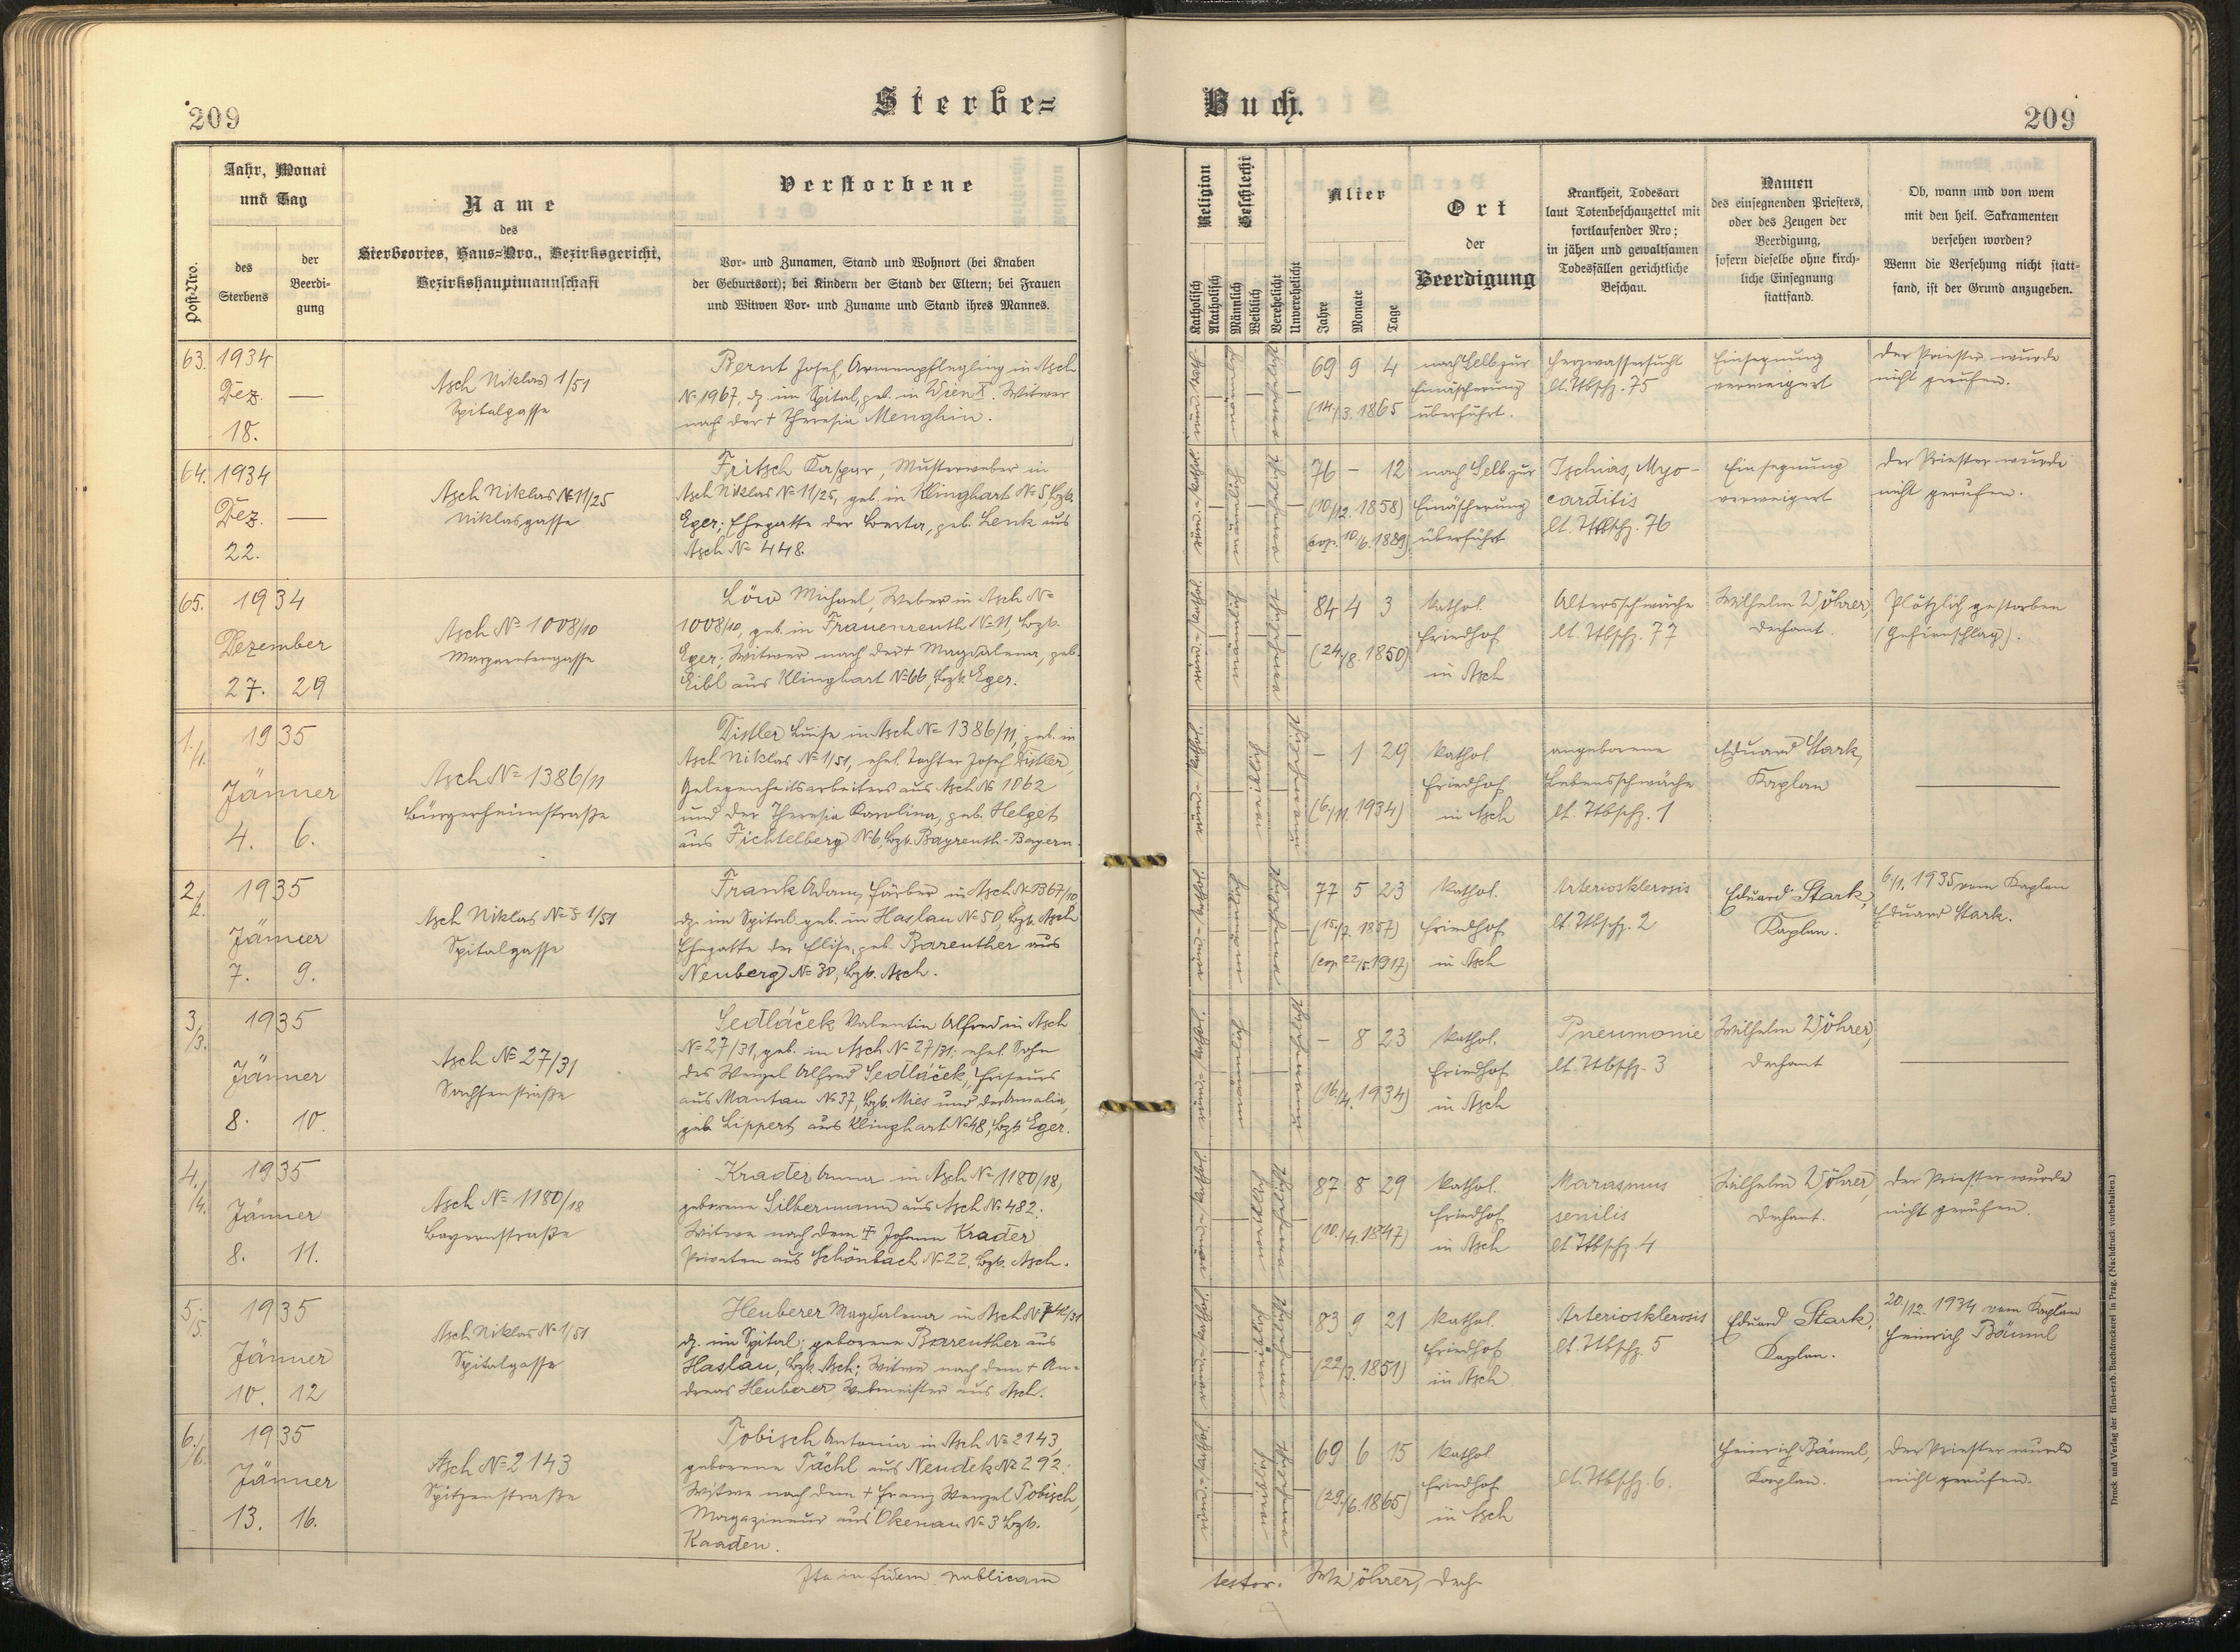 209
Sterbe=
Buch.
209
Post-Nro.
Jahr, Monat
und Tag
des
Sterbens
der
Beerdi-
gung
Name
des
Sterbeortes, Haus=Nro., Bezirksgericht,
Bezirkshauptmannschaft
Verstorbene
Vor- und Zunamen, Stand und Wohnort (bei Knaben
der Geburtsort); bei Kindern der Stand der Eltern; bei Frauen
und Witwen Vor- und Zuname und Stand ihres Mannes.
Religion
Katholisch
Akatholisch
Geschlecht
Männlich
Weiblich
Verehelicht
Unverehelicht
Alter
Jahre
Monate
Tage
Ort
der
Beerdigung
Krankheit, Todesart
laut Totenbeschauzettel mit
fortlaufender Nro;
in jähen und gewaltsamen
Todesfällen gerichtliche
Beschau.
Namen
des einsegnenden Priesters,
oder des Zeugen der
Beerdigung,
sofern dieselbe ohne kirch-
liche Einsegnung
stattfand.
Ob, wann und von wem
mit den heil. Sakramenten
versehen worden?
Wenn die Versehung nicht statt-
fand, ist der Grund anzugeben.
63.
1934
Dez. —
18.
Asch Niklas 1/51
Spitalgasse
Bernt Josef, Armenpflegling in Asch
№ 1967, dz. im Spital, geb. in Wien X. Witwer
nach der + Theresia Menghin.
69 9 4
(14./3. 1865
nach Selb zur
Einäscherung
überführt.
Herzwassersucht
lt. Ttbschz. 75
Einsegnung
verweigert
Der Priester wurde
nicht gerufen.
64.
1934
Dez. —
22.
Asch Niklas № 11/25
Niklasgasse
Fritsch Kaspar, Musterweber in
Asch Niklas № 11/25, geb. in Klinghart № 5, Bzk.
Eger; Ehegatte der Berta, geb. Lenk aus
Asch № 448.
76 – 12
(10/12. 1858)
cop. 10./6. 1889)
nach Selb zur
Einäscherung
überführt
Ischias, Myo-
carditis
lt. Ttbschz. 76
Einsegnung
verweigert
Der Priester wurde
nicht gerufen.
65.
1934
Dezember
27. 29
Asch № 1008/10
Margaretengasse
Löw Michael, Weber in Asch №
1008/10, geb. in Frauenreuth № 11, Bzk.
Eger; Witwer nach der + Magdalena, geb.
Eibl aus Klinghart № 66, Bzk. Eger.
84 4 3
(24./8. 1850)
kathol.
Friedhof
in Asch
Altersschwäche
lt. Ttbschz. 77
Wilhelm Wöhrer,
Dechant.
Plötzlich gestorben
(Gehirnschlag).
1./1.
1935
Jänner
4. 6.
Asch № 1386/11
Bürgerheimstraße
Distler Luise in Asch № 1386/11, geb. in
Asch Niklas № 1/51, ehel. Tochter Josef Distler,
Gelegenheitsarbeiters aus Asch № 1062
und der Theresia Karolina, geb. Helget
aus Fichtelberg № 6, Bzk. Bayreuth-Bayern.
– 1 29
(6./11. 1934)
kathol.
Friedhof
in Asch
angeborene
Lebensschwäche
lt. Ttbschz. 1
Eduard Stark,
Kaplan
—
2./2.
1935
Jänner
7. 9.
Asch Niklas № 1/51
Spitalgasse
Frank Adam, Färber in Asch № 1367/10
dz. im Spital geb. in Haslau № 50, Bzk. Asch
Ehegatte der Elise, geb. Bareuther aus
Neuberg № 30, Bzk. Asch.
77 5 23
(15./7. 1857)
(cop. 22/5. 1917)
kathol.
Friedhof
in Asch
Arteriosklerosis
lt. Ttbschz. 2
Eduard Stark,
Kaplan.
6./1. 1935 vom Kaplan
Eduard Stark.
3/3.
1935
Jänner
8. 10.
Asch № 27/31
Sachsenstraße
Sedláček Valentin Alfred in Asch
№ 27/31, geb. in Asch № 27/31; ehel. Sohn
des Wenzel Alfred Sedláček, Friseurs
aus Mantau № 37, Bzk. Mies und der Amalia,
geb. Lippert aus Klinghart № 48, Bzk. Eger.
– 8 23
(16./4. 1934)
kathol.
Friedhof
in Asch
Pneumonie
lt. Ttbschz. 3
Wilhelm Wöhrer,
Dechant
—
4./4.
1935
Jänner
8. 11.
Asch № 1180/18
Bayernstraße
Krader Anna in Asch № 1180/18,
geborene Silbermann aus Asch № 482.
Witwe nach dem + Johann Krader
Privaten aus Schönbach № 22, Bzk. Asch.
87 8 29
(10./4. 1847)
kathol.
Friedhof
in Asch
Marasmus
senilis
lt. Ttbschz 4
Wilhelm Wöhrer,
Dechant.
Der Priester wurde
nicht gerufen.
5./5.
1935
Jänner
10. 12
Asch Niklas № 1/51
Spitalgasse
Heuberer Magdalena in Asch
dz. im Spital; geborene Bareuther aus
Haslau, Bzk. Asch; Witwe nach dem + An-
dreas Heuberer, Webmeister aus Asch.
83 9 21
(22/3. 1851)
kathol.
Friedhof
in Asch
Arteriosklerosis
lt. Ttbschz. 5
Eduard Stark,
Kaplan.
20./12. 1934 vom Kaplan
Heinrich Bäuml
6./6.
1935
Jänner
13. 16.
Asch № 2143
Spitzenstraße
Tobisch Antonia in Asch № 2143,
geborene Pächl aus Neudek № 292.
Witwe nach dem + Franz Wenzel Tobisch,
Magazineur aus Okenau № 3 Bzk.
Kaaden.
69 6 15
(29./6. 1865)
kathol.
Friedhof
in Asch
lt. Ttbschz. 6.
Heinrich Bäuml,
Kaplan.
Der Priester wurde
nicht gerufen.
Ita in fidem publicam
testor. W. Wöhrer, Dech.
Druck und Verlag der fürst-erzb. Buchdruckerei in Prag. (Nachdruck vorbehalten.)